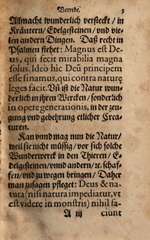 Vorrede. 3
Allmacht wunderlich versteckt / in
Kräutern / Edelgesteinen / und vie-
len andern Dingen. Daß recht in
Psalmen stehet: Magnus est De-
us, qui fecit mirabilia magna
solus. Ideo hîc Deũ principem
esse sinamus, qui contra naturę
leges facit. Uñ ist die Natur wun-
derlich in ihren Wercken / sonderlich
in opere generationis, in der zeu-
gung und gebehrung etlicher Crea-
turen.
Kan vnnd mag nun die Natur /
weil sie nicht müssig / vor sich solche
Wunderwerck in den Thieren / E-
delgesteinen / vnnd andern ꝛc. schaf-
fen / und zu wegen bringen / Daher
man zusagen pfleget: Deus & na-
tura / nisi natura impediatur, ut
est videre in monstris) nihil fa-
A iij ciunt